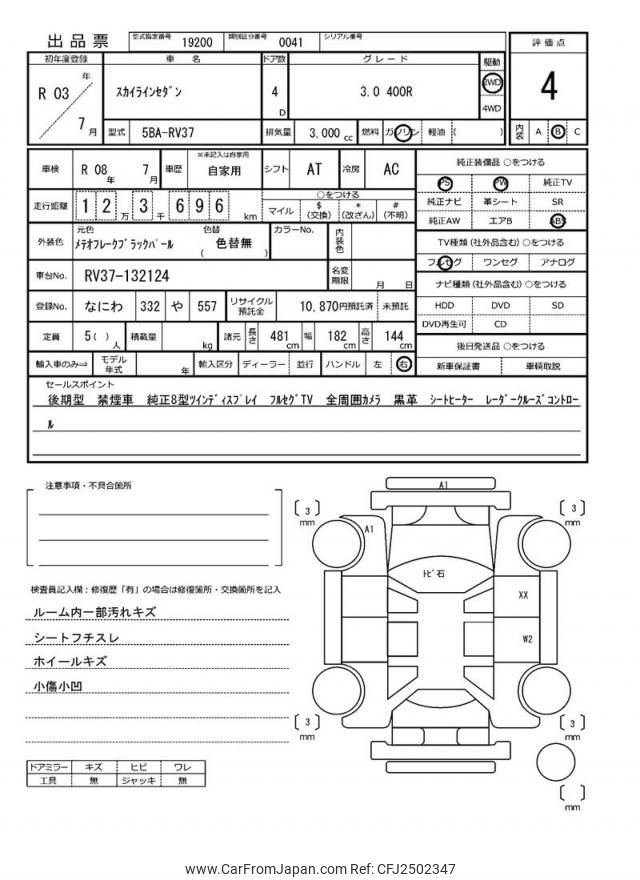 出品票 型式指定番号 19200 類別区分番号 0041 シリアル番号
評価点
4
内装 A B C
初年度登録 車 名 ドア数 グレード 駆動
R 03 年 7 月 ｽｶｲﾗｲﾝｾﾀﾞﾝ 4 D 3.0 400R 2WD 4WD
型式 5BA-RV37 排気量 3,000 cc 燃料 ガソリン 軽油 ( )
車検 R 08 年 7 月 車歴 ※未記入は自家用 自家用 シフト AT 冷房 AC
走行距離 1 2 万 3 千 6 9 6 km ○をつける マイル $ (交換) * (改ざん) # (不明)
外装色 元色 ﾒﾃｵﾌﾚｰｸﾌﾞﾗｯｸﾊﾟｰﾙ 色替 ( 色替無 ) カラーNo. 内装色
車台No. RV37-132124 名変期限 月 日
登録No. なにわ 332 や 557 リサイクル預託金 10,870円預託済 未預託
定員 5 ( ) 人 積載量 kg 諸元 長さ 481 cm 幅 182 cm 高さ 144 cm
輸入車のみ⇒ モデル年式 年 輸入区分 ディーラー 並行 ハンドル 左 右
純正装備品 ○をつける
PS PW 純正TV
純正ナビ 革シート SR
純正AW エアB ABS
TV種類 (社外品含む) ○をつける
フルセグ ワンセグ アナログ
ナビ種類 (社外品含む) ○をつける
HDD DVD SD
DVD再生可 CD
後日発送品 ○をつける
新車保証書 車輌取説
セールスポイント
後期型 禁煙車 純正8型ﾂｲﾝﾃﾞｨｽﾌﾟﾚｲ ﾌﾙｾｸﾞTV 全周囲ｶﾒﾗ 黒革 ｼｰﾄﾋｰﾀｰ ﾚｰﾀﾞｰｸﾙｰｽﾞｺﾝﾄﾛｰ
ﾙ
注意事項・不具合箇所
検査員記入欄：修復歴「有」の場合は修復箇所・交換箇所を記入
ルーム内一部汚れキズ
シートフチスレ
ホイールキズ
小傷小凹
ドアミラー キズ ヒビ ワレ
工具 無 ジャッキ 無
A1
[ 3 ] mm
[ 3 ] mm
A1
ﾄﾋﾞ石
XX
W2
[ 3 ] mm
[ 3 ] mm
[ ] mm
www.CarFromJapan.com Ref: CFJ2502347